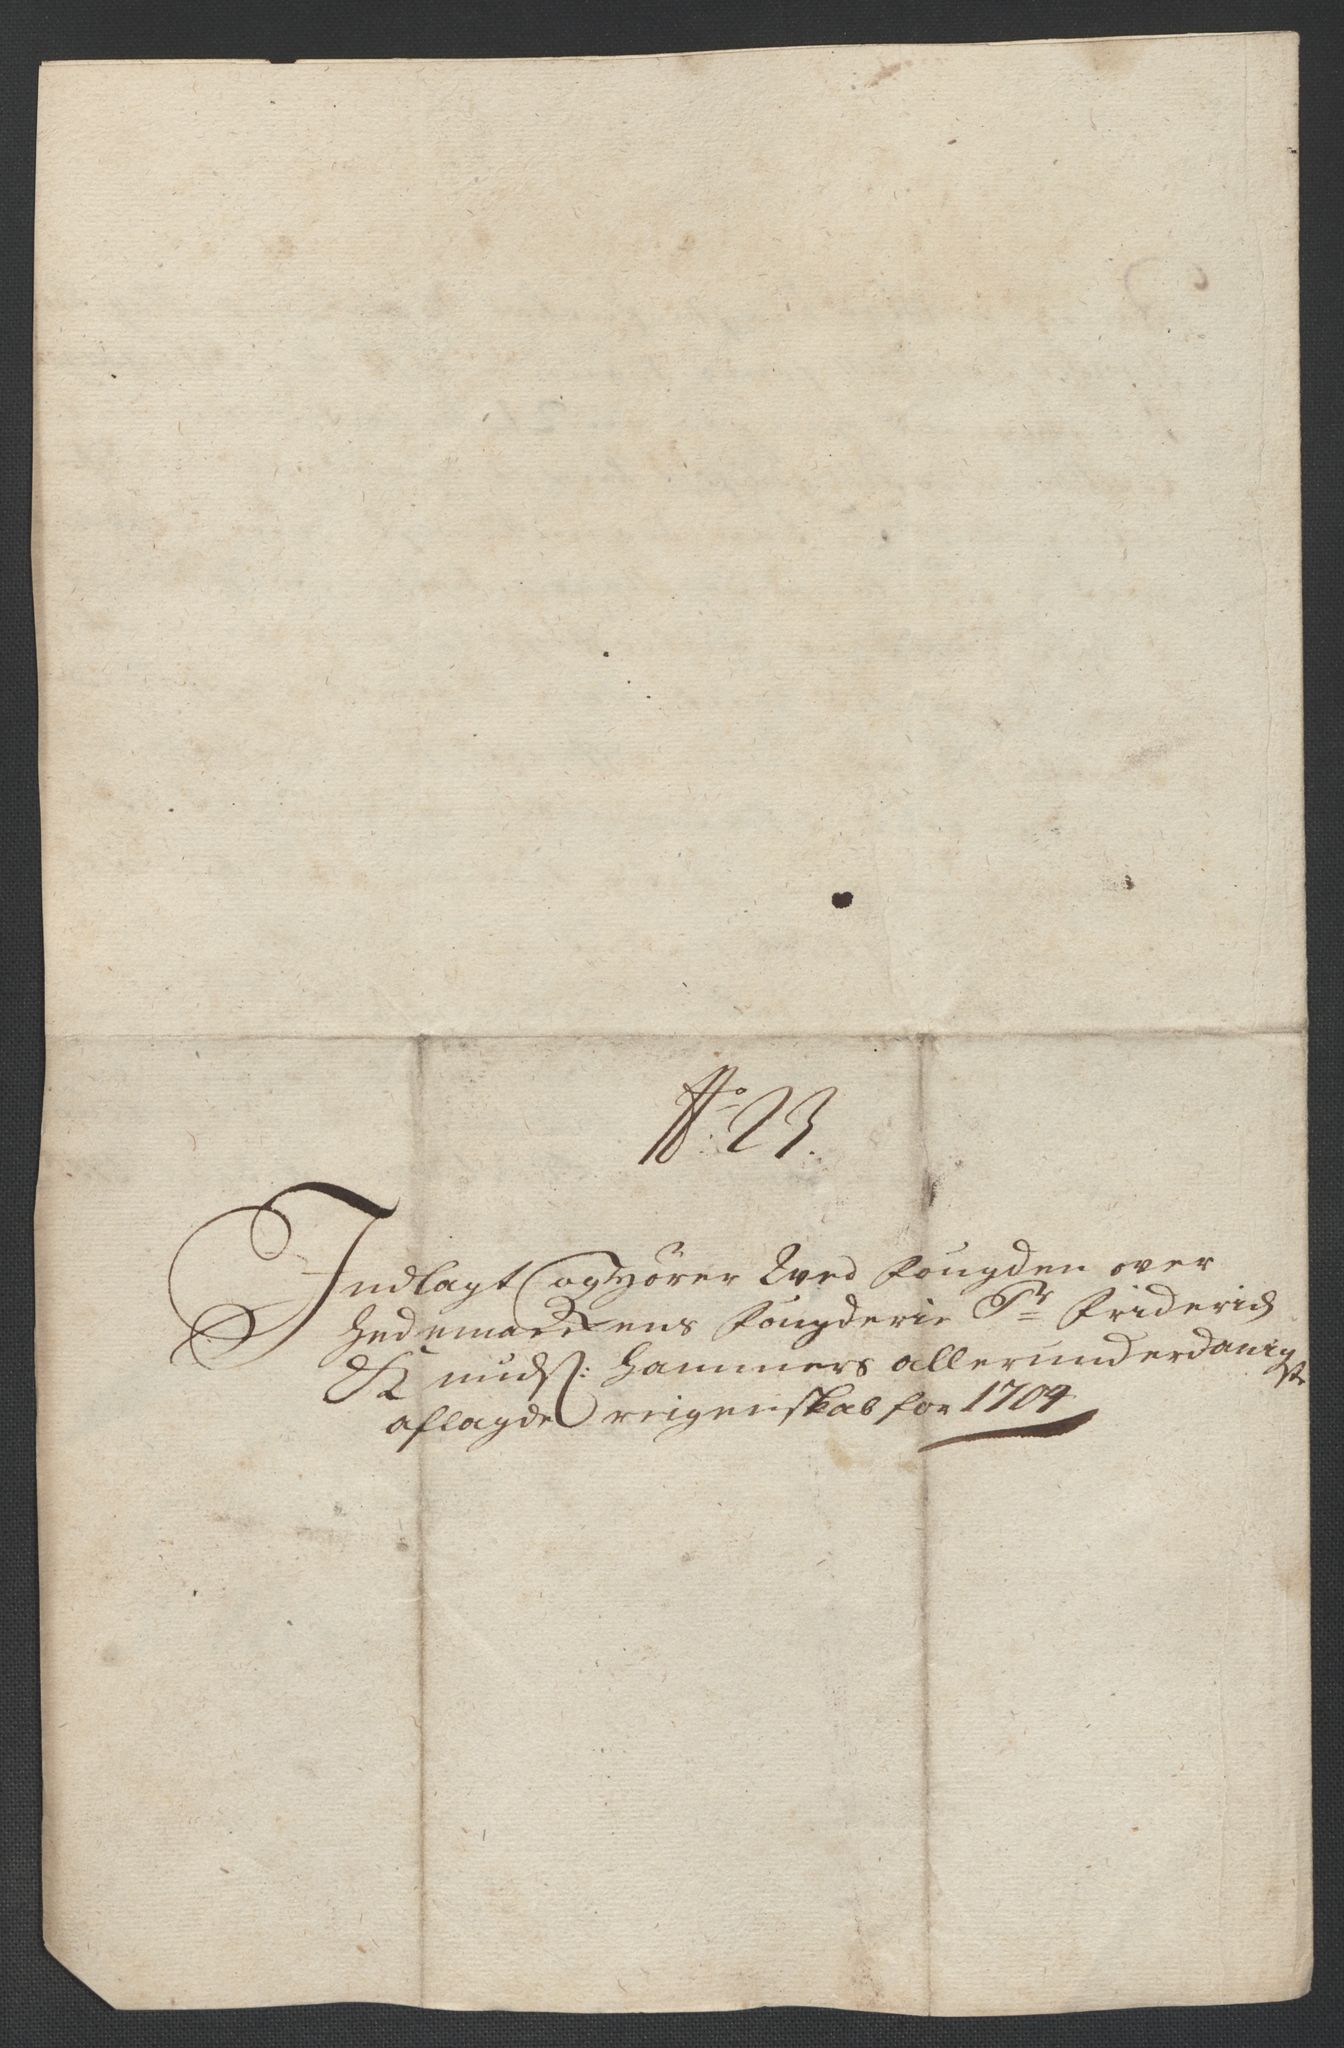 No: 23.
Indlagt og Hörer Wed Fougden over
Hedemarckens Fougderie Sr Friderich
Knudß: Hammers allerunderdanigste
aflagde reigenskab for 1704